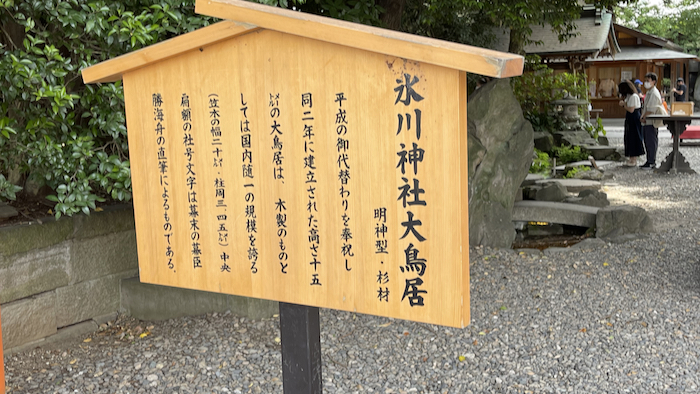 氷川神社大鳥居
明神型・杉材
平成の御代替わりを奉祝し
同二年に建立された高さ十五
㍍の大鳥居は、木製のものと
しては国内随一の規模を誇る
(笠木の幅二十㌢・柱周三.四五㍍)中央
肩額の社号文字は幕末の幕臣
勝海舟の直筆によるものである。